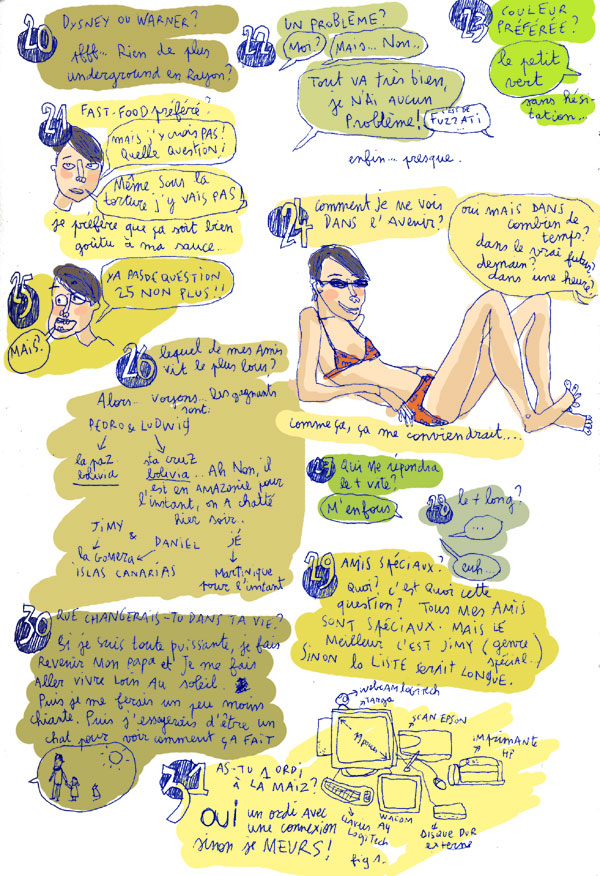 20 DYSNEY OU WARNER?
Afff... Rien de plus
underground en Rayon?
21 FAST-FOOD préféré?
mais j'y crois PAS!
Quelle question!
Même sous la
torture j'y vais PAS!
je préfère que ça soit bien
goûtu à ma sauce...
22 UN PROBLÈME?
Moi?
Mais... Non..
Tout va très bien,
je n'ai aucun
Problème!
C'EST DE
FUZZATI
enfin... presque.
23 COULEUR
PRÉFÉRÉE?
le petit
vert
sans hési-
tation...
24 comment je me vois
DANS l'AVENIR?
oui MAIS DANS
combien de
temps?
dans le vrai futur?
demain?
dans une heure?
comme ça, ça me conviendrait....
25
YA PAS DE QUESTION
25 NON PLUS!!
MAIS?
26 lequel de mes Amis
vit le plus loin?
Alors... voyons... les gagnants
sont:
PEDRO & LUDWIG
la paZ
bolivia
sta cruZ
bolivia... Ah Non, il
est en AMAZONIE pour
l'instant, on A chatté
hier soir..
JiMY
& DANIEL
JÉ
la GOMERA
ISLAS CANARIAS
MARTINIQUE
pour l'instant
27 Qui me répondra
le + vite?
M'enfous
28 le + long?
...
euh...
29 AMIS SPÉCIAUX?
Quoi? c'est quoi cette
question? Tous mes AMIS
SONT SPÉCIAUX. MAIS LE
Meilleur c'est JiMY (genre
spécial)
SINON la LISTE SERAIT LONGUE.
30 QUE CHANGERAIS-TU DANS TA VIE?
Si je suis toute puissante, je fais
Revenir Mon papa et Je me fais
Aller vivre loin Au soleil.
Puis je me ferais un peu moins
chiante. Puis j'essayerais d'être un
chat pour voir comment ÇA FAIT
31 AS-TU 1 ORDI
À LA MAIZ?
OUI un ordi avec
une connexion
sinon je MEURS!
fig 1.
webcam logitech
Targa
SCAN EPSON
iMPRIMANTE
HP
clavier A4
LogiTech
WACOM
DISQUE DUR
externe